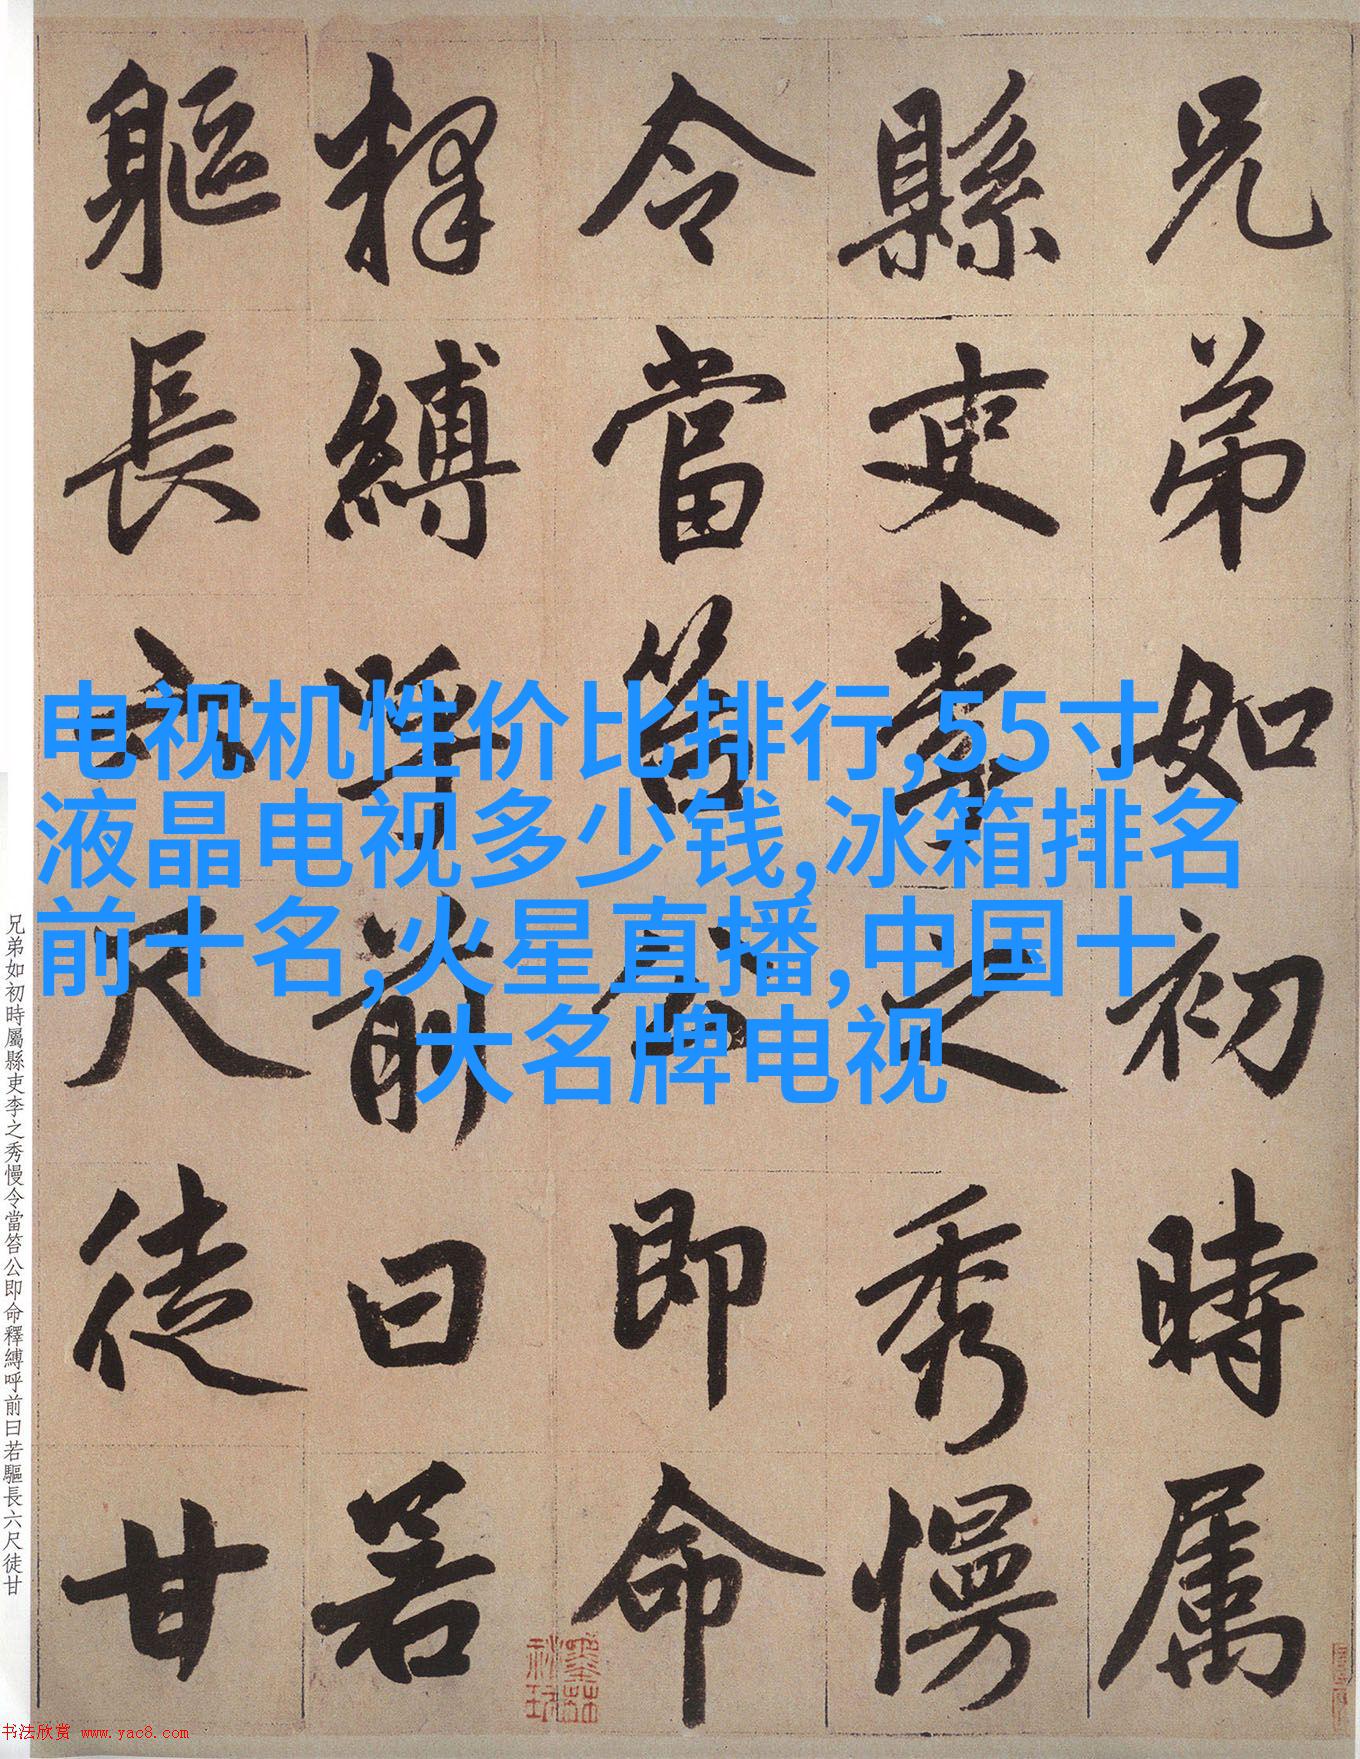 兄弟如初時属
縣吏李之秀慢
令當笞公即命
釋縛呼前曰若
軀長六尺徒甘
电视机性价比排行,55寸
液晶电视多少钱,冰箱排名
前十名,火星直播,中国十
大名牌电视
兄弟如初時屬縣吏李之秀慢令當笞公即命釋縛呼前曰若驅長六尺徒甘
书法欣赏 www.yac8.com